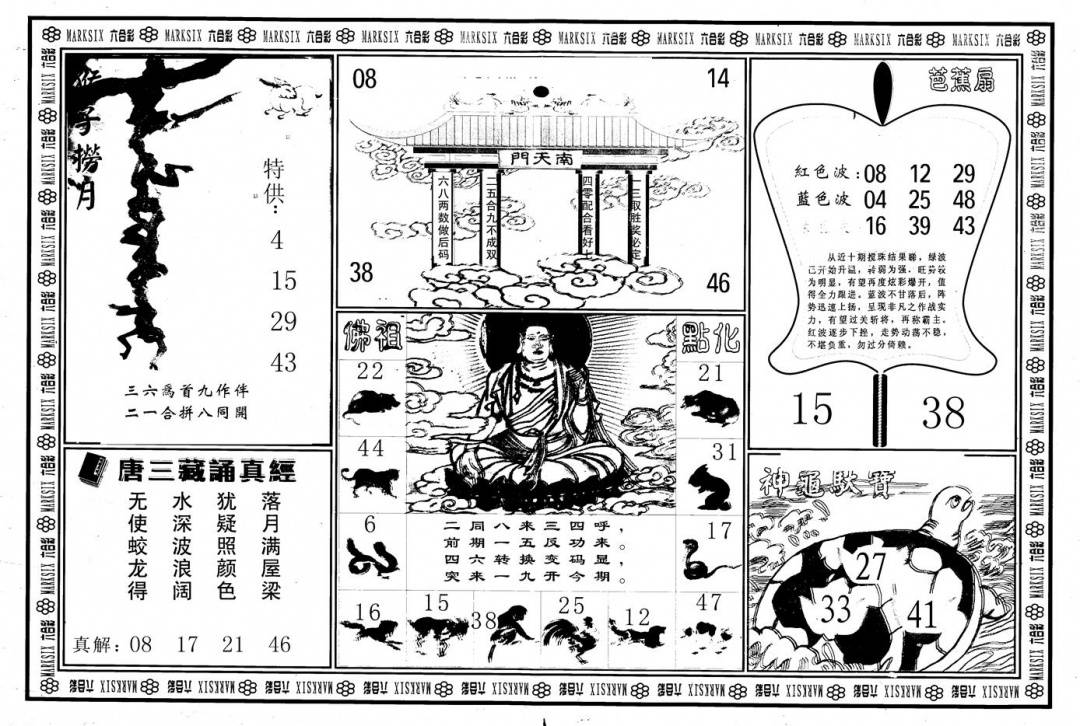 MARKSIX 六合彩 MARKSIX 六合彩 MARKSIX 六合彩 MARKSIX 六合彩 MARKSIX 六合彩 MARKSIX 六合彩 MARKSIX 六合彩 MARKSIX 六合彩 MARKSIX 六合彩 MARKSIX 六合彩
猴子撈月
特供：
4
15
29
43
三六為首九作伴
二一合拼八同開
08
14
南天門
六八两数做后码
二五合九不成双
四零配合看好
一三取胜奖必定
38
46
芭蕉扇
紅色波：08 12 29
藍色波 04 25 48
16 39 43
从近十期搅珠结果睇，绿波
已开始升温，转弱为强，旺势较
为明显，有望再度炫彩爆开，值
得全力跟进。蓝波不甘落后，阵
势迅速上扬，呈现非凡之作战实
力，有望过关斩将，再称霸主。
红波逐步下挫，走势动荡不稳，
不堪负重，勿过分倚赖。
15
38
佛祖
點化
22
44
6
16
15
38
25
12
47
21
31
17
二同八来三四呼，
前期一五反功来。
四六转换变码显，
突来一九开今期。
唐三藏誦真經
落月满屋梁
犹疑照颜色
水深波浪阔
无使蛟龙得
真解：08 17 21 46
神龜馱寶
27
33
41
MARKSIX 六合彩 MARKSIX 六合彩 MARKSIX 六合彩 MARKSIX 六合彩 MARKSIX 六合彩 MARKSIX 六合彩 MARKSIX 六合彩 MARKSIX 六合彩 MARKSIX 六合彩 MARKSIX 六合彩